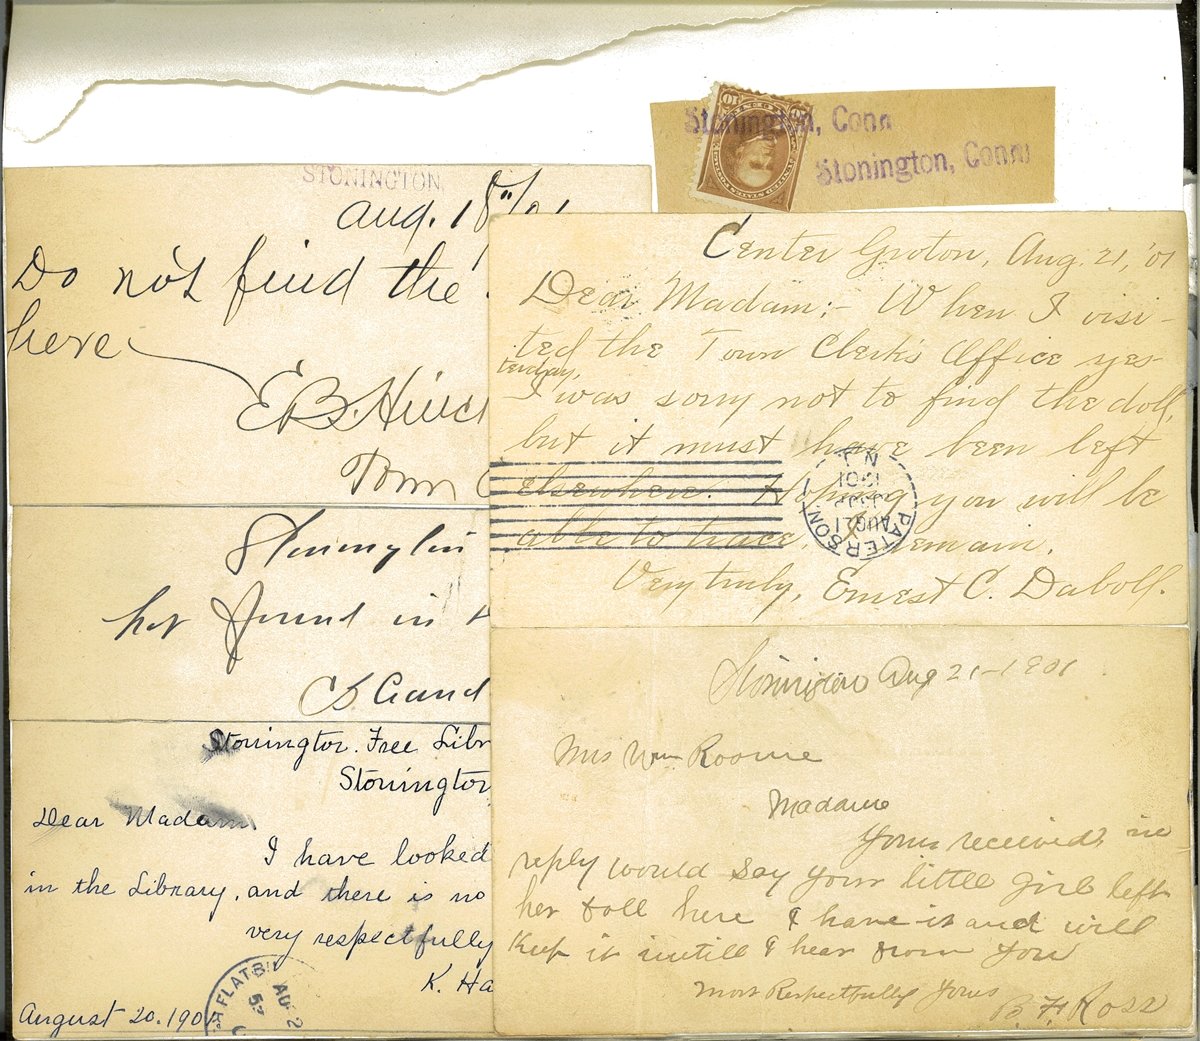 Stonington, Conn
Stonington, Conn
STONINGTON,
Aug. 18"/01
Do not find the
here
E B. Hinck
Town C
Stonington
not found in
Stonington Free Libr
Stonington
Dear Madam
I have looked
in the Library, and there is no
very respectfully
K. Ha
August 20. 190
FLATB
AUG 2
Center Groton, Aug. 21, '01
Dear Madam:- When I visi-
ted the Town Clerk's Office yes-
terday,
I was sorry not to find the doll,
but it must have been left
elsewhere. Hoping you will be
able to trace. I remain.
Very truly, Ernest C. Daboll.
PATERSON,
AUG 21
1901
N.J.
Stonington Aug 21-1901
Mrs Wm Roome
Madame
Yours received, in
reply would say your little girl left
her doll here I have it and will
Keep it untill I hear from you
Most Respectfully Yours
B. F. Ross